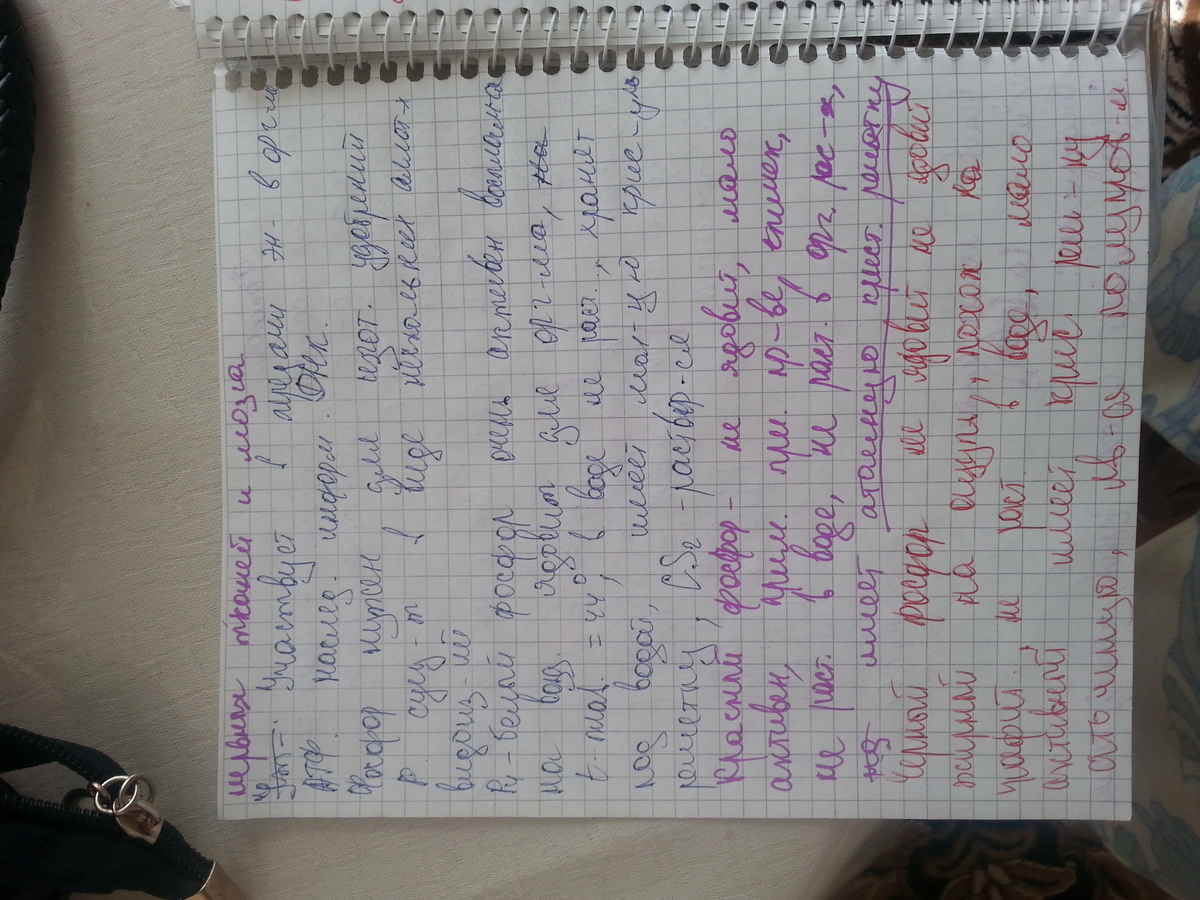 нервных тканей и мозга.
Участвует в предачи эн- в орг-ме
АТФ. наслед. информ. ДНК.
Фосфор нужен для изгот. удобрений
P сущ-т в виде нескольких аллот-х
видоиз-ий
P4 - белый фосфор очень активен воспламе
на возд. ядовит для орг-ма,
t. пл. = 44°, в воде не раст., хранят
под водой, имеет мол-ую крис-ую
решетку, CS2 - раствор-ся
Красный фосфор - не ядовит, мало
активен, прим. при пр-ве, спичек,
не раст. в воде, не раст. в орг. рас-х,
имеет атомную крист. решетку
Черный фосфор не ядовит не ядовит
жирный на ощупь, похож на
графит. не раст в воде, мало
активный имеет крис. реш-ку
атомную, св-ва полупров-м.